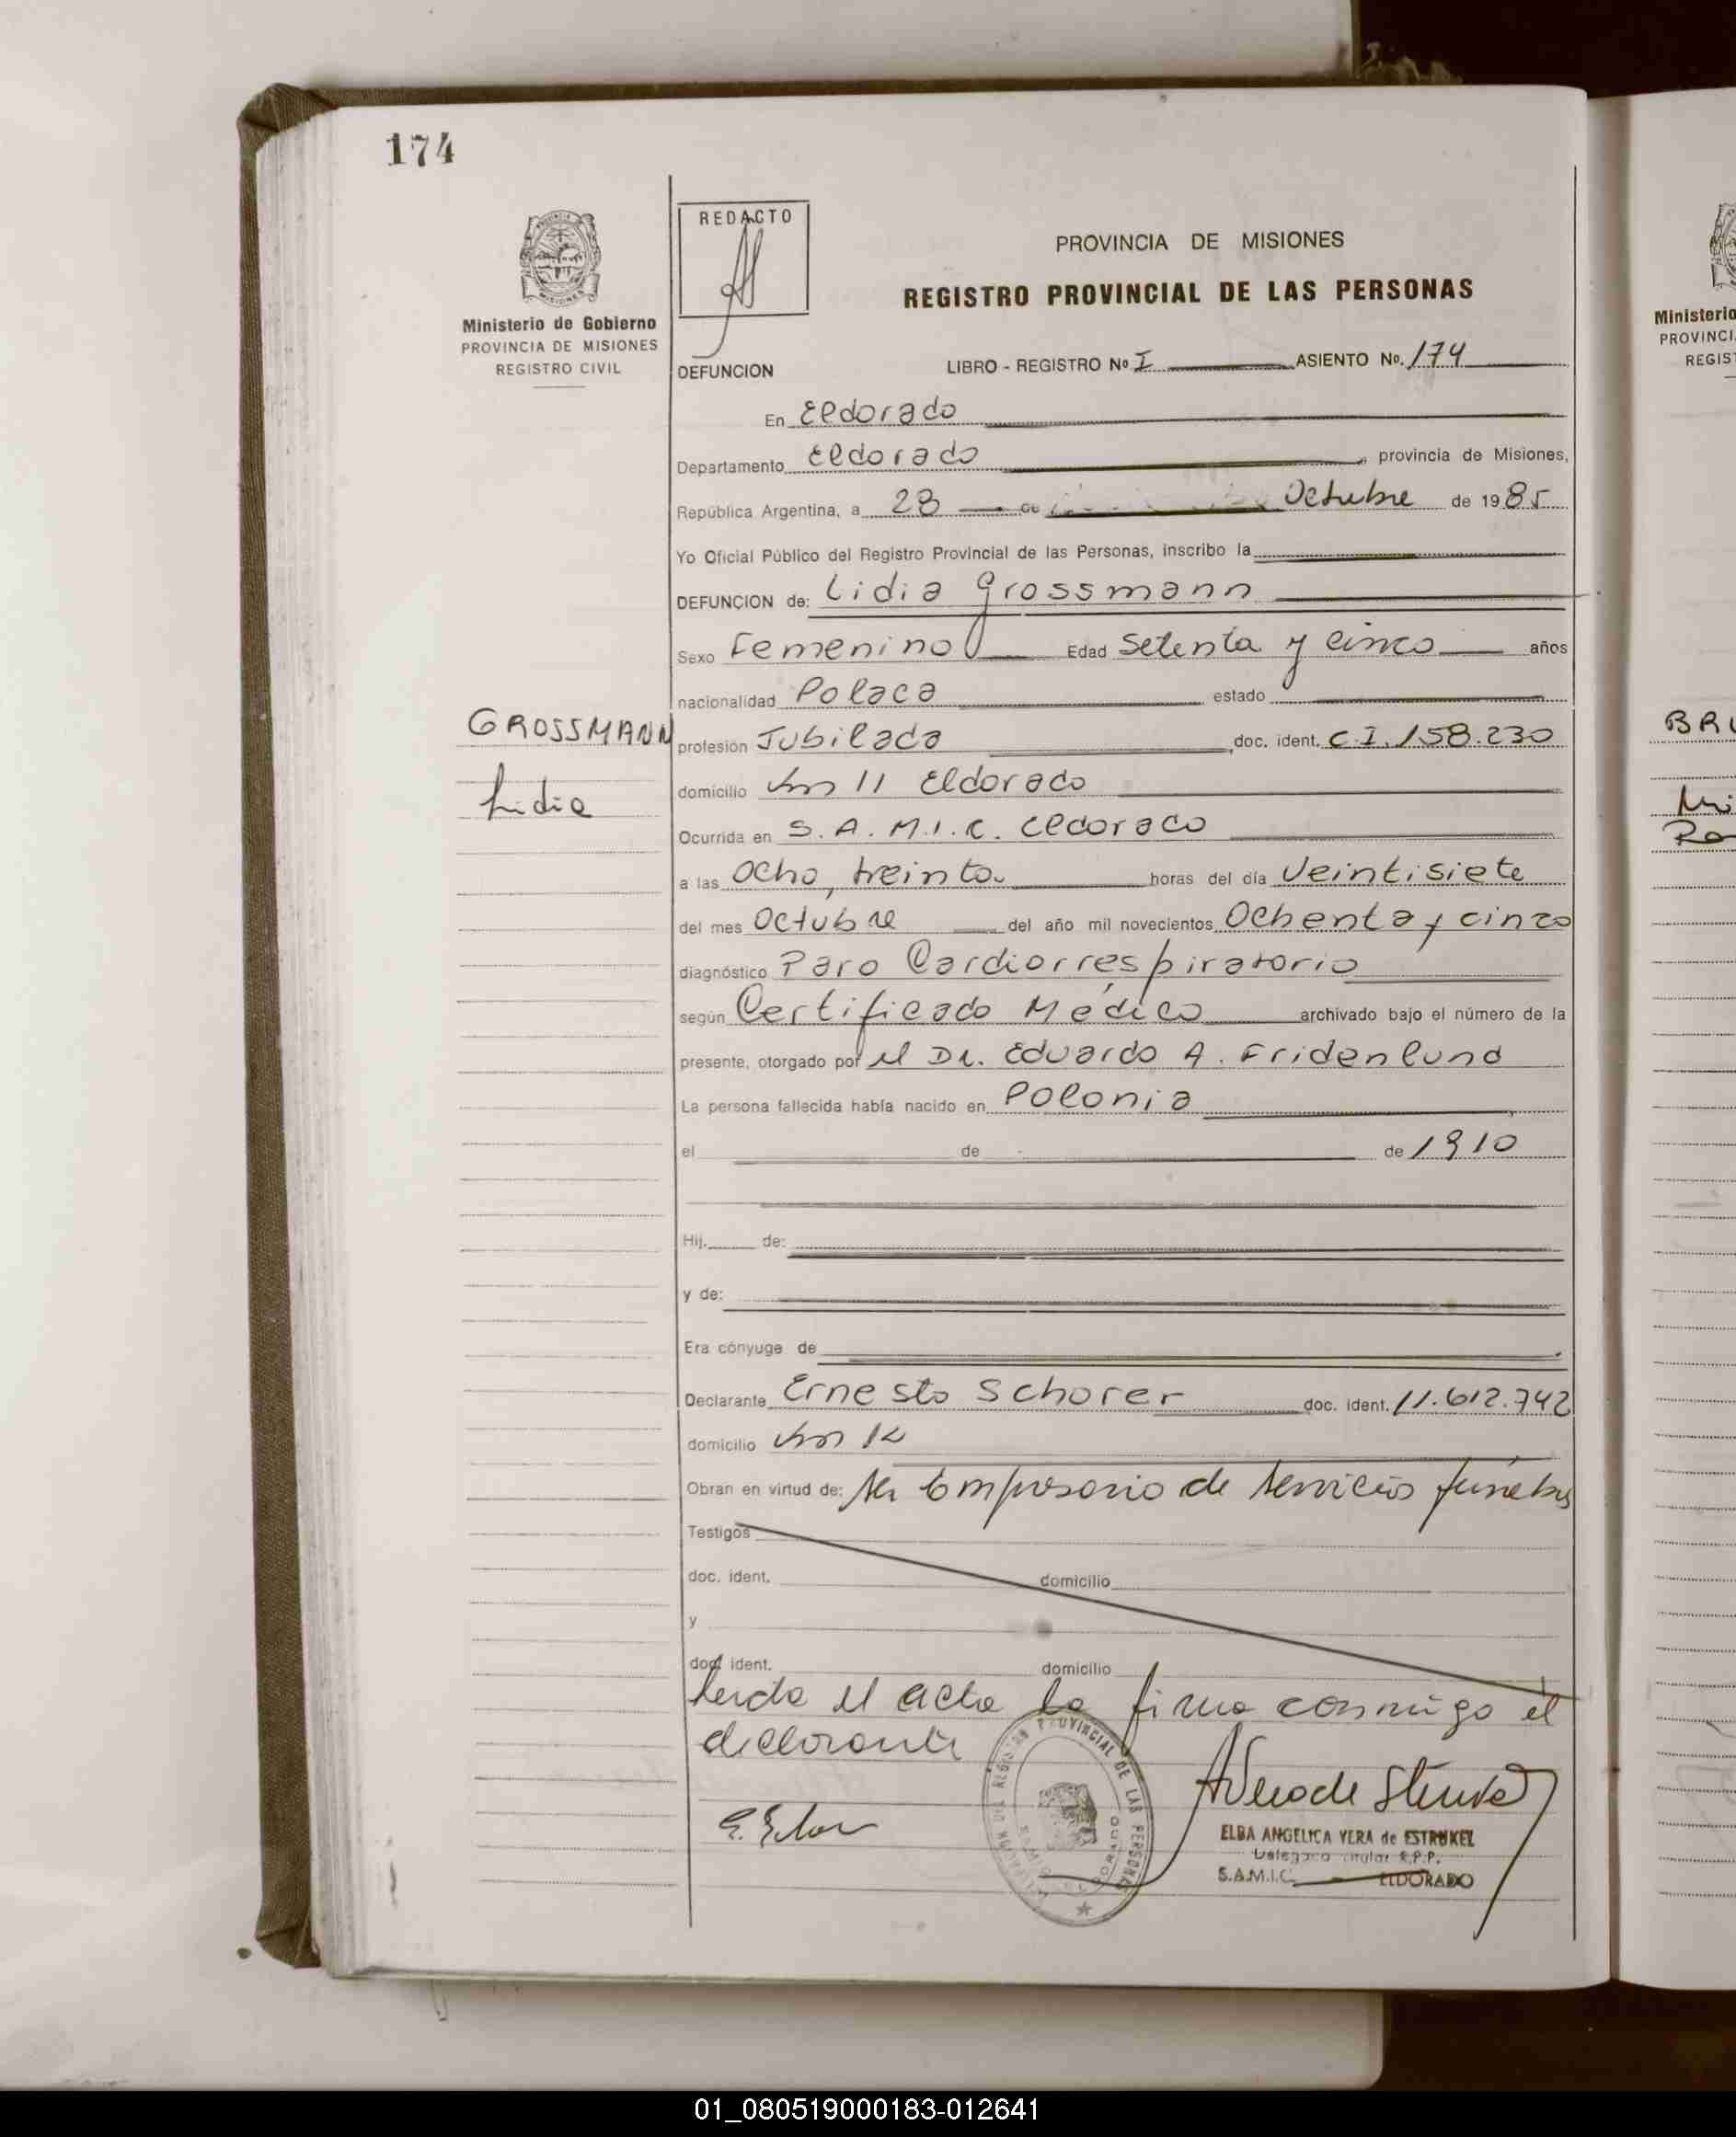 174
REDACTO
PROVINCIA DE MISIONES
REGISTRO PROVINCIAL DE LAS PERSONAS
Ministerio de Gobierno
PROVINCIA DE MISIONES
REGISTRO CIVIL
DEFUNCION LIBRO - REGISTRO Nº I ASIENTO No. 174
En Eldorado
Departamento Eldorado, provincia de Misiones,
República Argentina, a 28 de Octubre de 1985
Yo Oficial Público del Registro Provincial de las Personas, inscribo la
DEFUNCION de: Lidia Grossmann
Sexo Femenino Edad Setenta y cinco años
nacionalidad Polaca estado
GROSSMANN
Lidia
profesión Jubilada, doc. ident. C.I. 158.230
domicilio Km 11 Eldorado
Ocurrida en S.A.M.I.C. Eldorado
a las Ocho, treinta horas del día Veintisiete
del mes Octubre del año mil novecientos Ochenta y cinco
diagnóstico Paro Cardiorrespiratorio
según Certificado Médico archivado bajo el número de la
presente, otorgado por el Dr. Eduardo A. Fridenlund
La persona fallecida había nacido en Polonia
el de de 1910
Hij. de:
y de:
Era cónyuge de
Declarante Ernesto Schorer doc. ident. 11.612.742
domicilio Km 12
Obran en virtud de: ser Empresario de servicios fúnebres
Testigos
doc. ident. domicilio
y
doc. ident. domicilio
Leida el acta la firma conmigo el
declarante
REGISTRO PROVINCIAL DE LAS PERSONAS
ELDORADO
ELBA ANGELICA VERA de ESTRUKEL
Delegada titular R.P.P.
S.A.M.I.C. ELDORADO
Ministerio
PROVINCI
REGIST
BRU
01_080519000183-012641